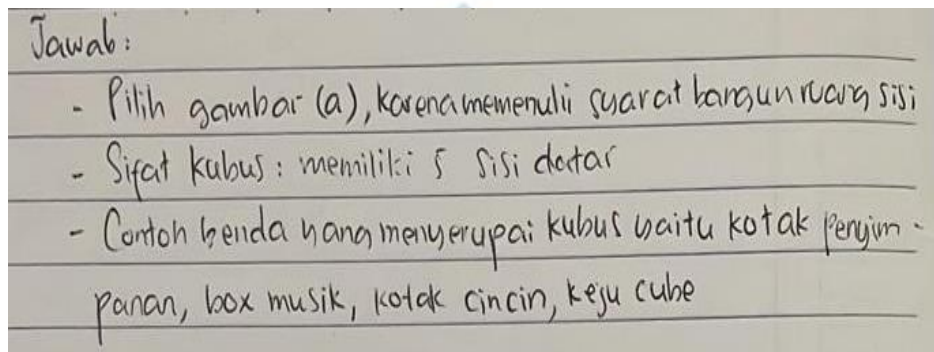 Jawab:
- Pilih gambar (a), karena memenuhi syarat bangun ruang sisi
- Sifat kubus: memiliki 5 sisi datar
- Contoh benda yang menyerupai kubus yaitu kotak penyim-
panan, box musik, kotak cincin, keju cube